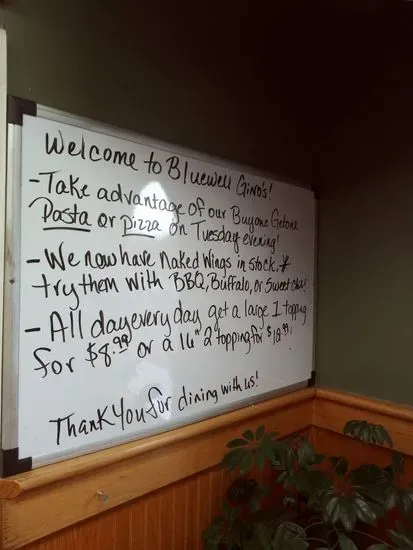 Welcome to Bluewell Gino's!
- Take advantage of our Buy one Get one
Pasta or Pizza on Tuesday evening!
- We now have Naked Wings in stock. *
try them with BBQ, Buffalo, or Sweet Chili!
- All day every day get a large 1 topping
for $8.99 or a 16" 2 topping for $18.99!
Thank You for dining with us!